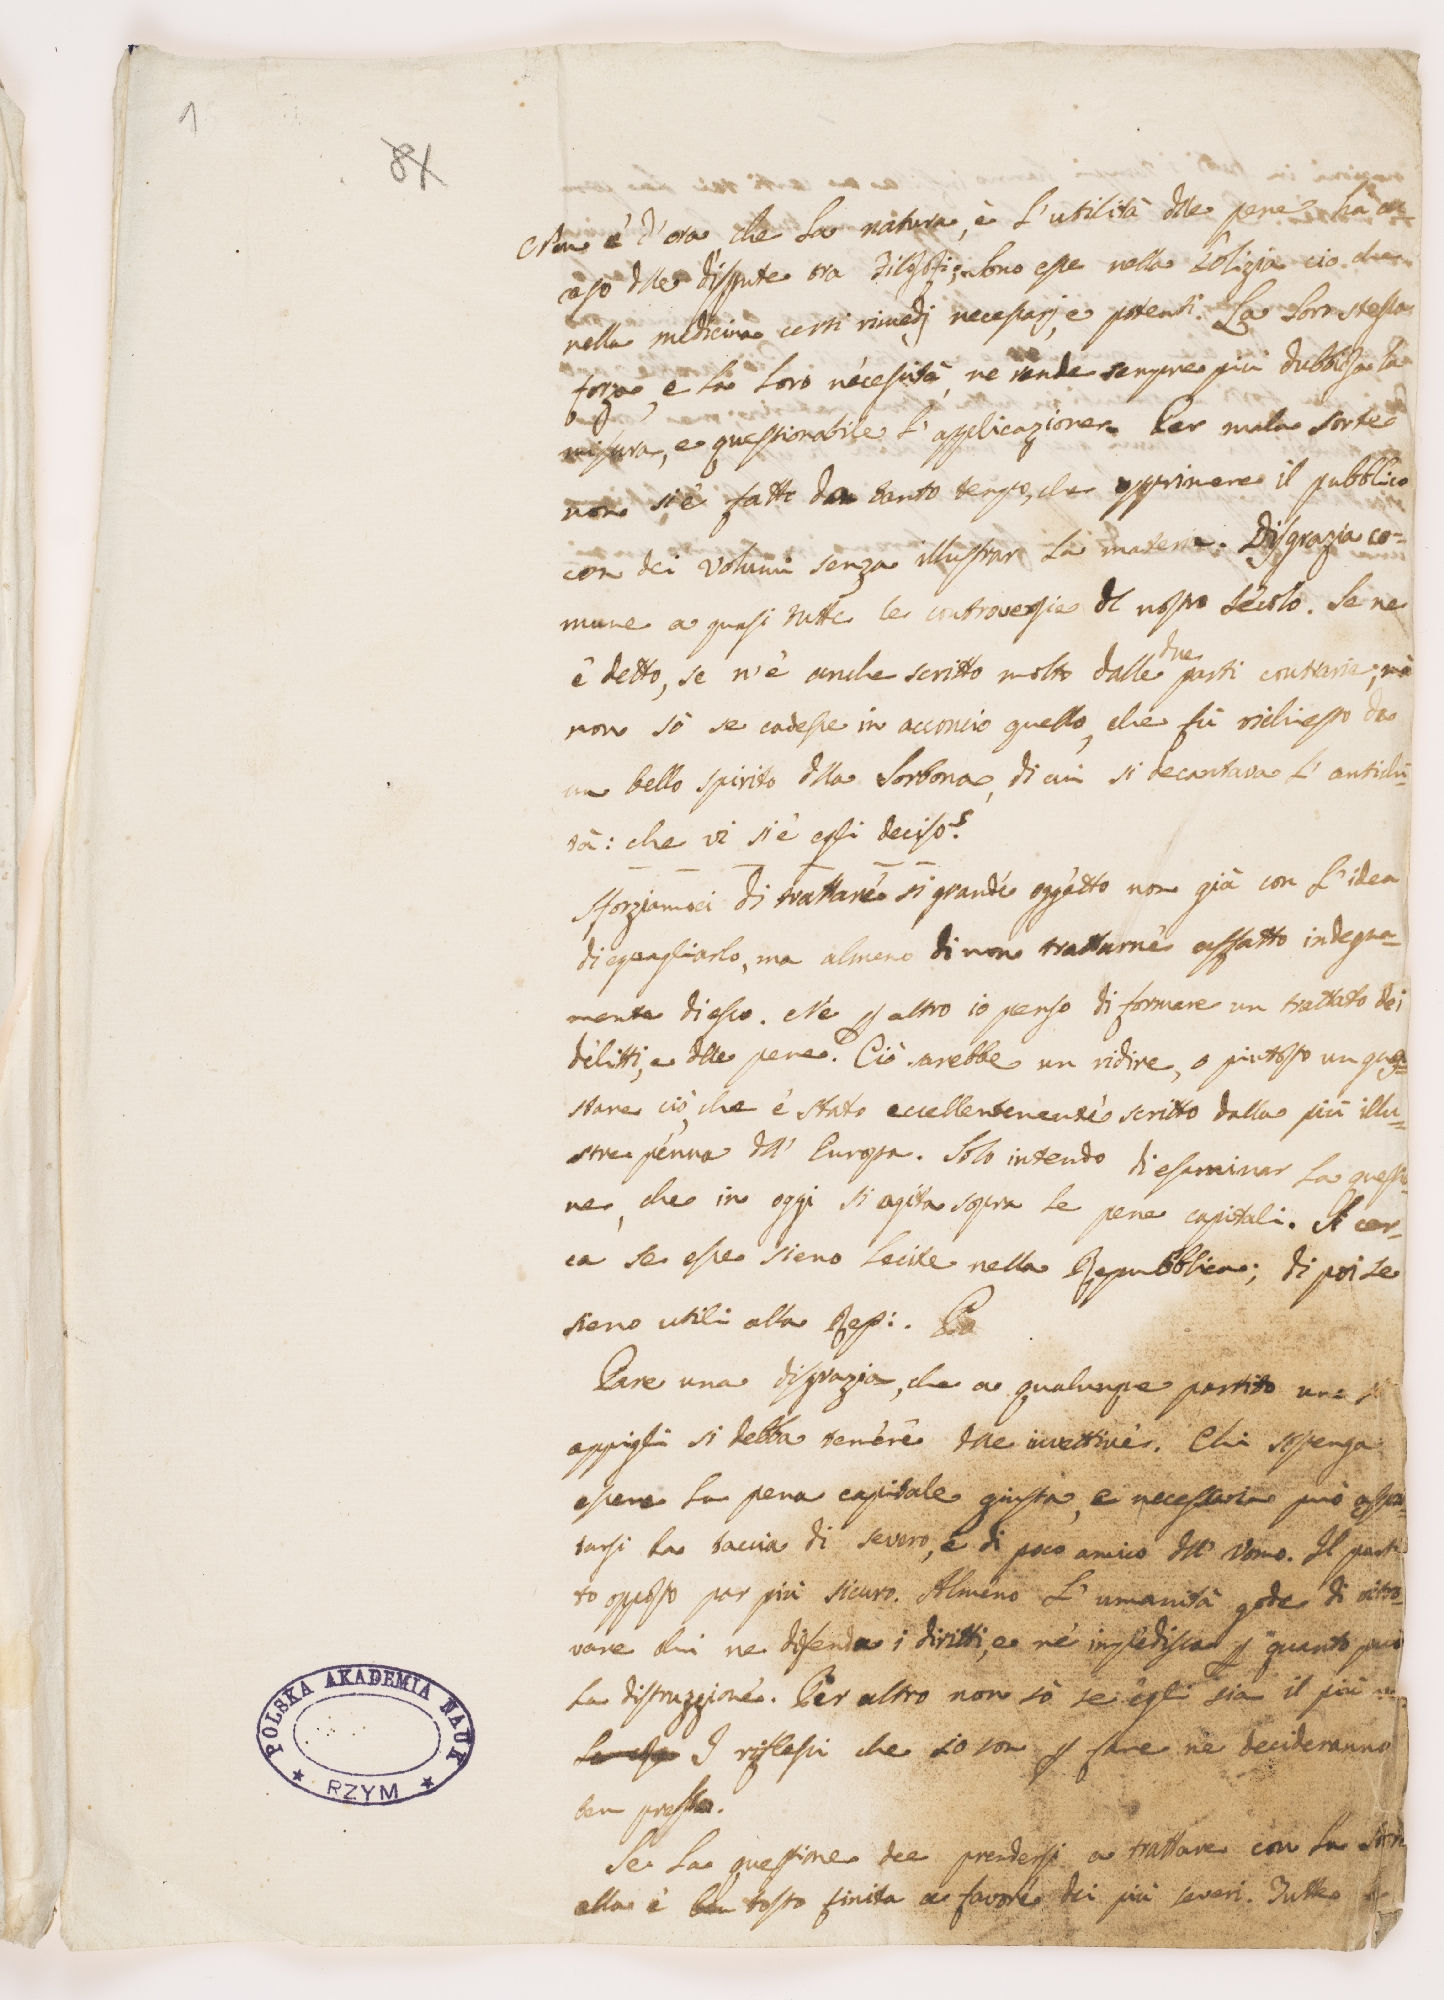 1
81
Non è d'ora, che la natura, e l'utilità dlle pene hà
dlle dispute tra Filosofi; sono esse nella Polizia ciò che
nella medicina certi rimedj necessarj, e potenti. La loro stessa
forza, e la loro necessità, ne rende sempre più dubbiosa la
misura, e questionabile l'applicazione. Per mala sorte
non si è fatto da tanto tempo, che opprimere il pubblico
con dei volumi senza illustrar la materia. Disgrazia co=
mune a quasi tutte le controversie dl nostro secolo. Se ne
è detto, se n'è anche scritto molto dalle due parti contrarie; mà
non sò se cadesse in acconcio quello, che fù richiesto da
un bello spirito dlla Sorbona, di cui si decantava l'antichi=
tà: che vi si è egli deciso?
Sforziamoci di trattare si grande oggetto non già con l'idea
di eguagliarlo, ma almeno di non trattarne affatto indegna=
mente di esso. Ne p altro io penso di formare un trattato dei
delitti, e dlle pene. Ciò sarebbe un ridire, o piutosto un gua=
stare ciò, che è stato eccellentemente scritto dalla più illu=
stre penna dll'Europa. Solo intendo di esaminar la questio
ne, che in oggi si agita sopra le pene capitali. Si cer=
ca se esse sieno lecite nella Repubblica; di poi se
sieno utili alla
Pare una disgrazia, che a qualunque partito uno si
appigli si debba temere dlle invettive. Chi sostenga
essere la pena capitale giusta, e necessaria può aspet=
tarsi la taccia di severo, e di poco amico dll'Uomo. Il parti
to opposto par più sicuro. Almeno l'umanità gode di ritro=
vare chi ne difenda i diritti, e ne impedisca p quanto può
la distruzzione. Per altro non sò se egli sia il più
I riflessi che io son p fare ne decideranno
ben presto.
Se la questione dee prendersi a trattare con la
ella è ben tosto finita a favore dei più severi. Tutte
POLSKA AKADEMIA NAUK
★ RZYM ★